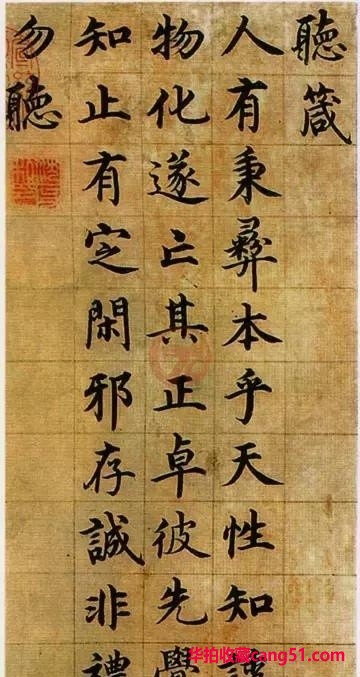 聽箴
人有秉彝本乎天性知誘
物化遂亡其正卓彼先覺
知止有定閑邪存誠非禮
勿聽
华拍收藏cang51.com